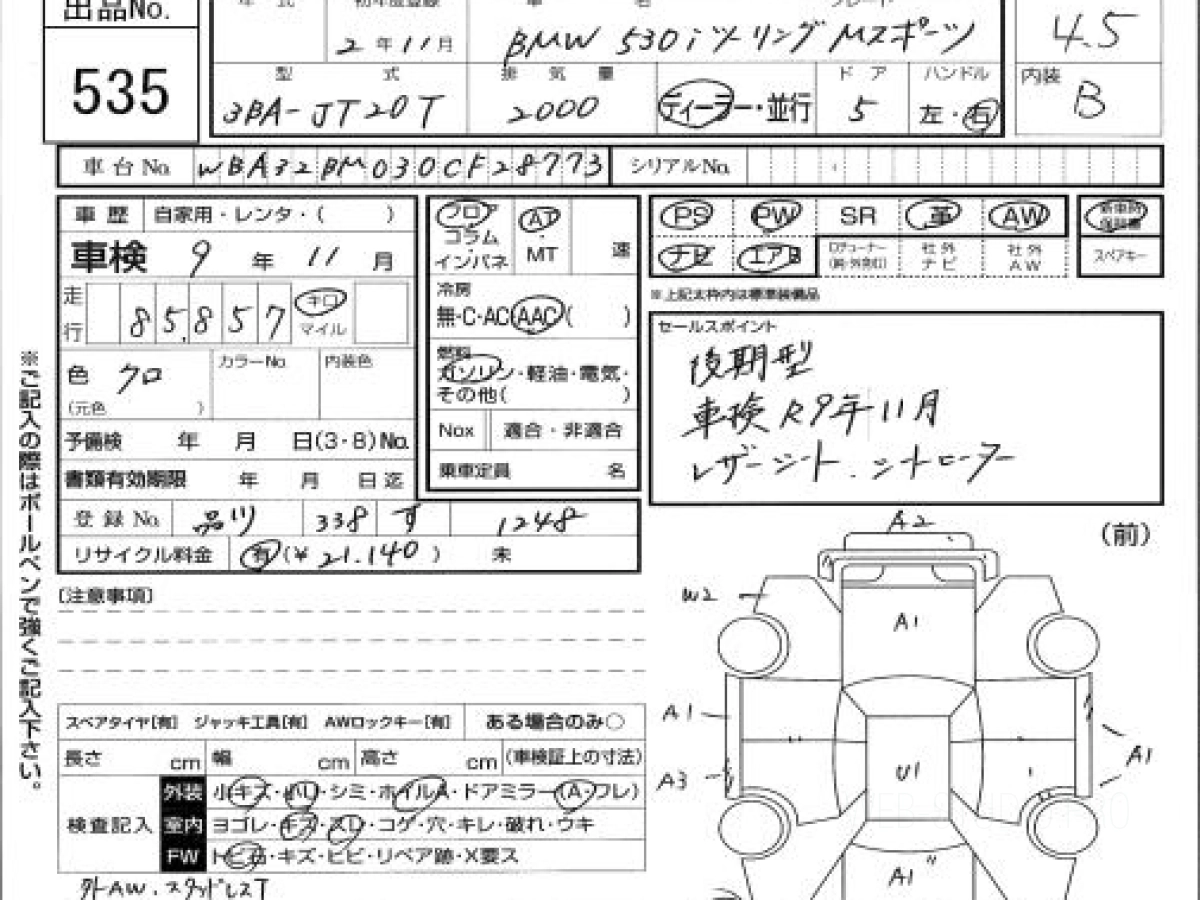 出品No.
535
年 式
初年度登録
2年11月
車 名
BMW 530i ツーリング Mスポーツ
グレード
4.5
型 式
3BA-JT20T
排 気 量
2000
ディーラー・並行
ド ア
5
ハンドル
左・右
内装
B
車台No.
WBA32BM030CF28773
シリアルNo.
車 歴 自家用・レンタ・( )
車検 9年11月
走行 85,857 キロ マイル
色 クロ
(元色 )
カラーNo. 内装色
予備検 年 月 日(3・8)No.
書類有効期限 年 月 日迄
登録No. 品川 338 す 1248
リサイクル料金 有(¥21.140) 未
フロア
コラム
インパネ
AT
・
MT
速
冷房
無・C・AC・AAC( )
燃料
ガソリン・軽油・電気・
その他( )
Nox 適合・非適合
乗車定員 名
PS PW SR 革 AW
新車時保証書
ナビ エアB
社外ナビ
社外AW
スペアキー
※上記太枠内は標準装備品
セールスポイント
後期型
車検R9年11月
レザーシート.シートヒーター
※ご記入の際はボールペンで強くご記入下さい。
[注意事項]
(前)
A2
W2
A1
A1
A3
U1
A1
A1
スペアタイヤ[有] ジャッキ工具[有] AWロックキー[有] ある場合のみ○
長さ cm 幅 cm 高さ cm (車検証上の寸法)
検査記入
外装 小キズ・ハリ・シミ・ホイルA・ドアミラー(A・フレ)
室内 ヨゴレ・キズ・スレ・コゲ・穴・キレ・破れ・ウキ
FW トビ石・キズ・ヒビ・リペア跡・X要ス
外AW.スタッドレスT